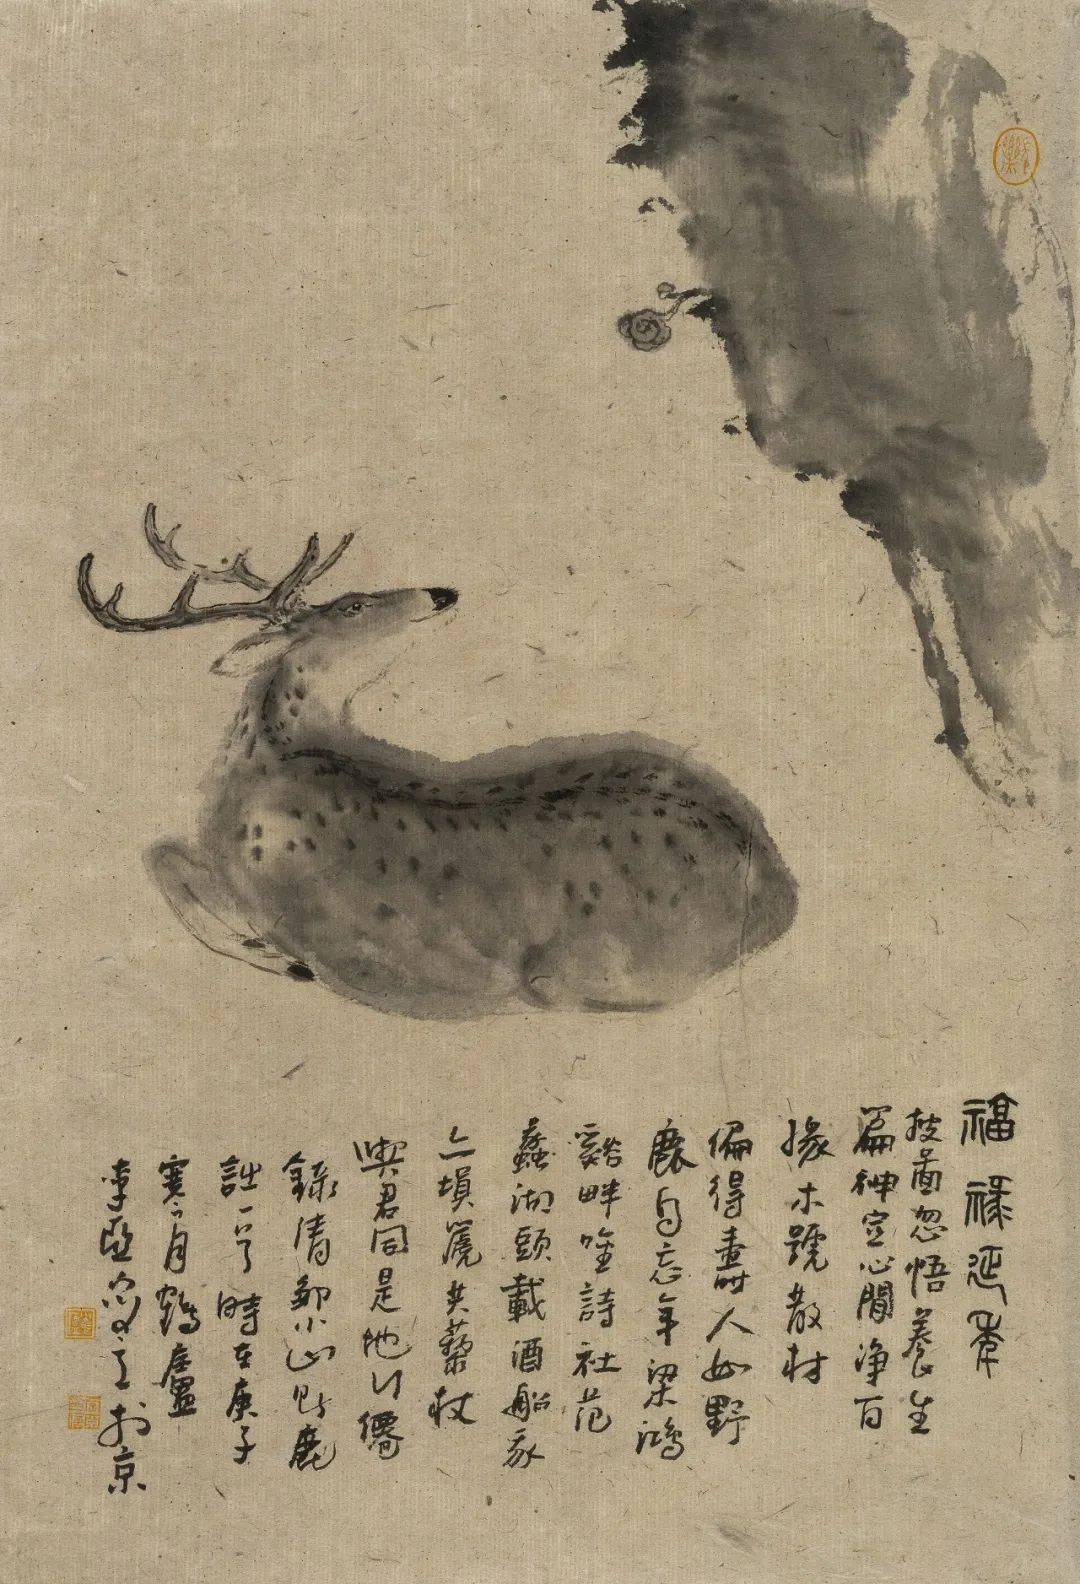 福祿延年
披啚忽悟養生
篇神定心閒净百
緣木號散材
偏得壽人如野
鹿自忘年梁鴻
谿畔唫詩社范
蠡湖頭載酒船我
亦塤篪共藜杖
與君同是地行僊
錄清鄒小山鹿
詩一首時在庚子
寒月鶴廬
李亞於京